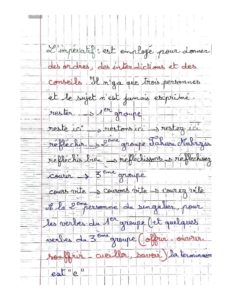 L'impératif : est employé pour donner
des ordres, des interdictions et des
conseils. Il n'y a que trois personnes
et le sujet n'est jamais exprimé.
rester → 1er groupe
reste ici → restons ici → restez ici
réfléchir → 2ème groupe
réfléchis bien → réfléchissons → réfléchissez
courir → 3ème groupe
cours vite → courons vite → courez vite
A la 2ème personne du singulier, pour
les verbes du 1er groupe (et quelques
verbes du 3ème groupe (offrir, ouvrir,
souffrir, cueillir, savoir) la terminaison
est "e"